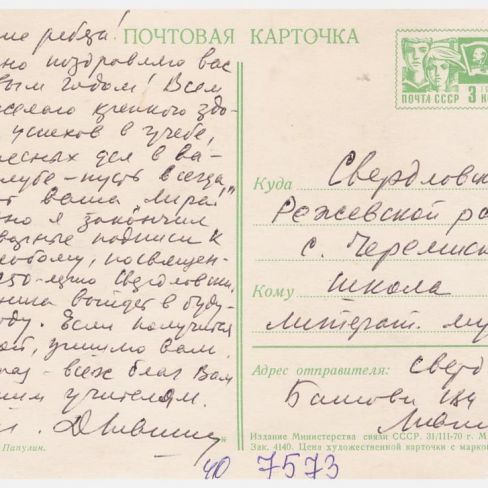 ие ребята!
но поздравляю вас
вым годом! Всем
желаю крепкого здо-
успехов в учебе,
ресных дел в ва-
клубе – пусть всегда
ет ваша "Лира"
но я закончил
подписи к
посвящен-
250-летию Свердловска.
выйдет в буду-
оду. Если получится
ой, пришлю вам.
раз – всех благ Вам
шим учителям.
Папулин.
ПОЧТОВАЯ КАРТОЧКА
ПОЧТА СССР 3 К
Куда Свердловск
Режевской ра
с. Черемисс
Кому Школа
Литерат. му
Адрес отправителя: Сверд
Изд​ание Министерства связи СССР. 31/III-70 г. М
Зак. 4140. Цена художественной карточки с маркой
40 7573